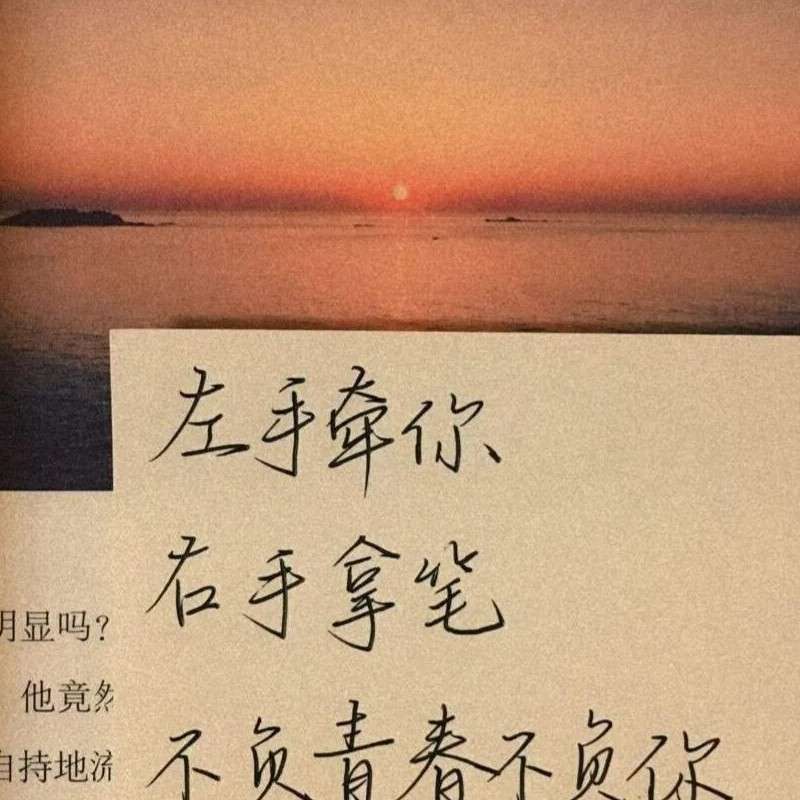 左手牵你
右手拿笔
明显吗？
他竟然
自持地流
不负青春不负你